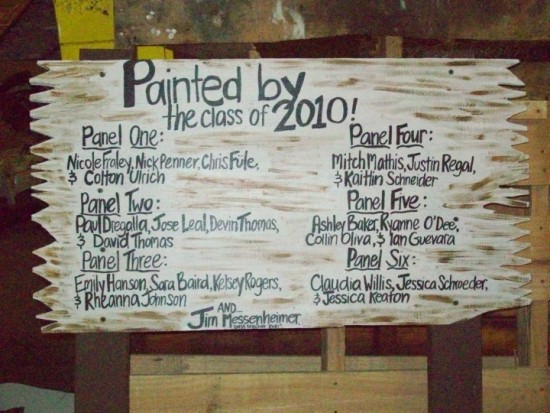 Painted by
the class of 2010!
Panel One:
Nicole Fraley, Nick Penner, Chris Fule,
& Colton Ulrich
Panel Two:
Paul Dregalla, Jose Leal, Devin Thomas,
& David Thomas
Panel Three:
Emily Hanson, Sara Baird, Kelsey Rogers,
& Rheanna Johnson
Panel Four:
Mitch Mathis, Justin Regal,
& Kaitlin Schneider
Panel Five:
Ashley Baker, Ryanne O'Dee,
Collin Oliva, & Ian Guevara
Panel Six:
Claudia Willis, Jessica Schroeder,
& Jessica Keaton
AND...
Jim Messenheimer